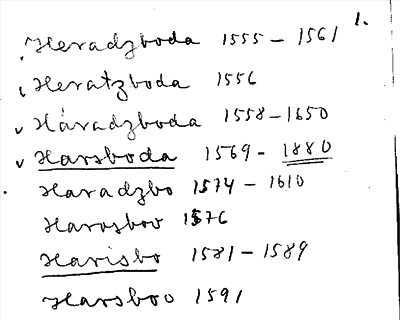 1.
Heradzboda 1555 – 1561
Heratzboda 1556
Håradzboda 1558–1650
Harsboda 1569 - 1880
Haradzbo 1574 – 1610
Harosboo 1576
Harisbo 1581 – 1589
Harsboo 1591